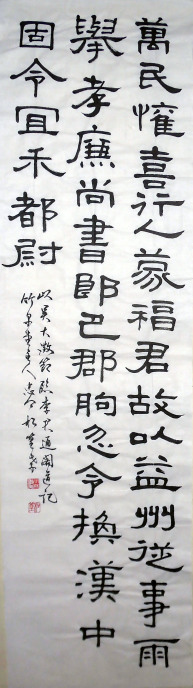 萬民懽喜行人蒙福君故以益州從事再
舉孝廉尚書郎巴郡朐忍令換漢中
固令宜禾都尉
以吴大澂節臨李君通閣道記